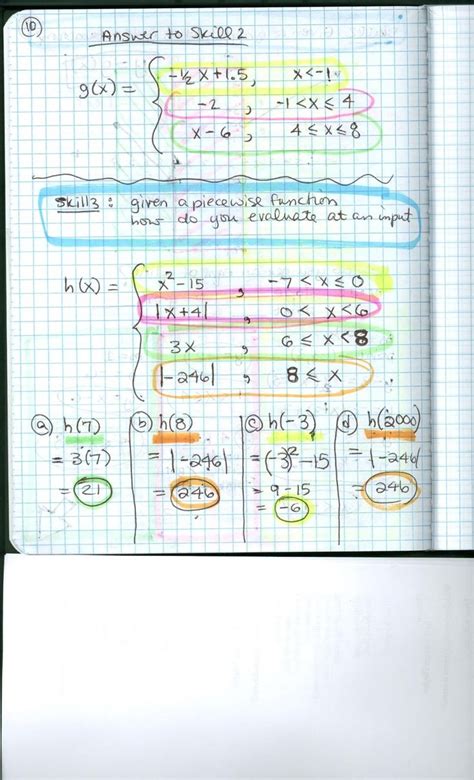 10
Answer to Skill 2
g(x) = { -1/2 x + 1.5, x < -1
-2, -1 < x ≤ 4
x - 6, 4 ≤ x ≤ 8
Skill 3: given a piecewise function
how do you evaluate at an input
h(x) = { x² - 15, -7 < x ≤ 0
|x + 4|, 0 < x < 6
3x, 6 ≤ x < 8
|-246|, 8 ≤ x
(a) h(7)
= 3(7)
= 21
(b) h(8)
= |-246|
= 246
(c) h(-3)
= (-3)² - 15
= 9 - 15
= -6
(d) h(2000)
= |-246|
= 246